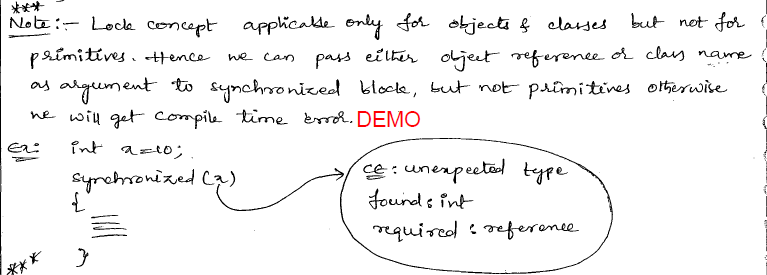 ***
Note :- Lock concept applicable only for objects & classes but not for
primitives. Hence we can pass either object reference or class name
as argument to synchronized block, but not primitives otherwise
we will get compile time error. DEMO
Ex: int x=10;
synchronized (x)
{
}
CE : unexpected type
found : int
required : reference
***